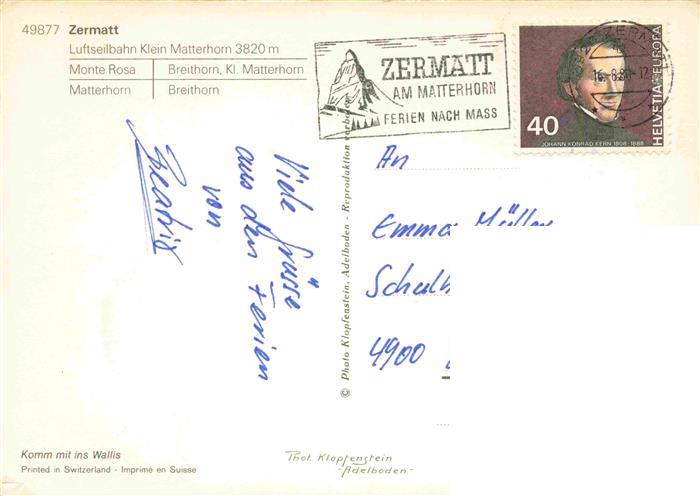 49877 Zermatt
Luftseilbahn Klein Matterhorn 3820 m
Monte Rosa Breithorn, Kl. Matterhorn
Matterhorn Breithorn
ZERMATT
AM MATTERHORN
FERIEN NACH MASS
ZERMATT
16.-8.80-17
40
JOHANN KONRAD KERN 1808-1888
HELVETIA EUROPA
Viele Grüsse
aus den Ferien
von
Beatrix
© Photo Klopfenstein, Adelboden - Reproduktion verboten
An
Emma Müller
4900
Komm mit ins Wallis
Printed in Switzerland - Imprimé en Suisse
Phot. Klopfenstein
-Adelboden-